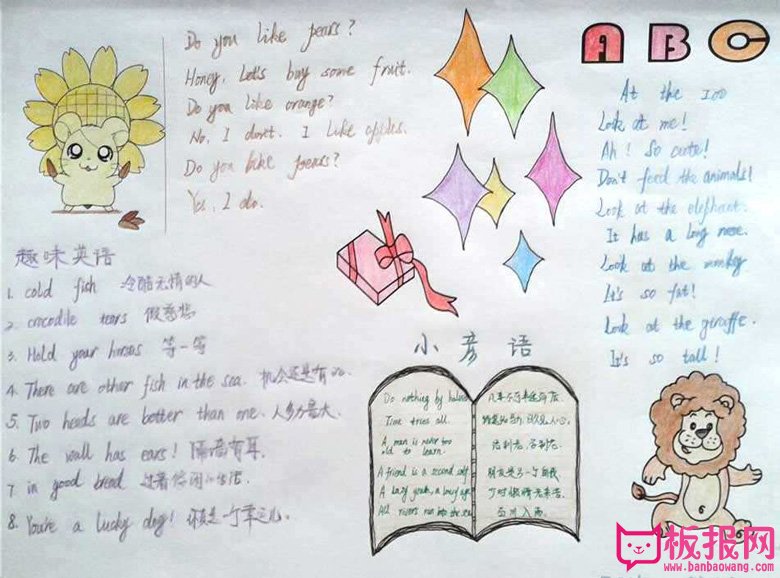 Do you like pears?
Honey, Let's buy some fruit.
Do you like orange?
No, I don't. I like apples.
Do you like pears?
Yes, I do.
趣味英语
1. cold fish 冷酷无情的人
2. crocodile tears 假慈悲
3. Hold your horses 等一等
4. There are other fish in the sea. 机会还是有的.
5. Two heads are better than one. 人多力量大.
6. The wall has ears! 隔墙有耳.
7 in good bread 过着悠闲的生活.
8. You're a lucky dog! 你真是一个幸运儿.
ABC
At the zoo
Look at me!
Ah! So cute!
Don't feed the animals!
Look at the elephant.
It has a long nose.
Look at the monkey
It's so fat!
Look at the giraffe.
It's so tall!
小彦语
Do nothing by halves
Time tries all.
A man is never too
old to learn.
A friend is a second self
A lazy youth, a lousy age
All rivers run into the sea
凡事不可半途而废.
路遥知马力,日久见人心.
活到老,学到老.
朋友是另一个自我
少时懒惰老来苦.
百川入海.
板报网
www.banbaowang.com